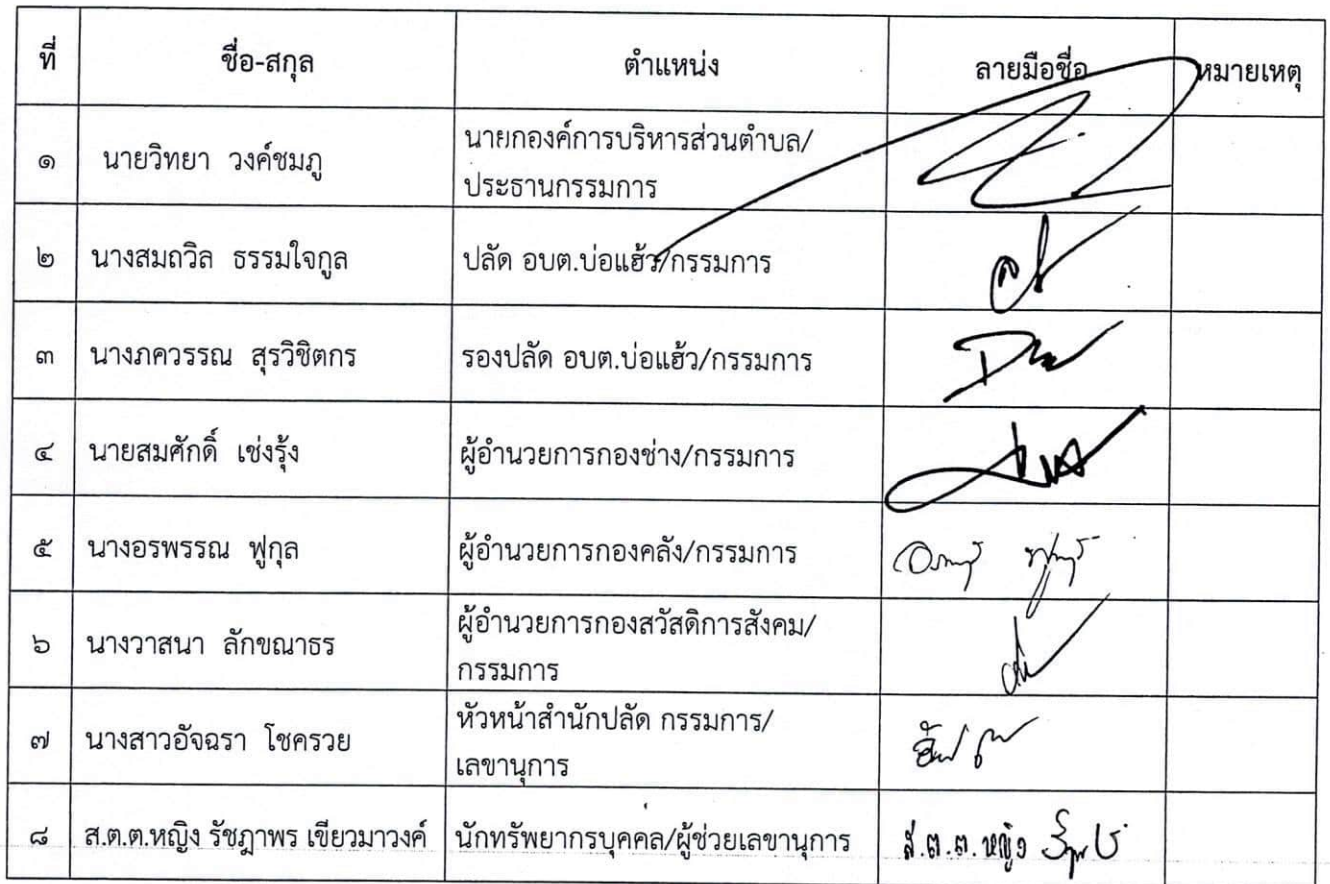 ที่ ชื่อ-สกุล ตำแหน่ง ลายมือชื่อ หมายเหตุ
๑ นายวิทยา วงค์ชมภู นายกองค์การบริหารส่วนตำบล/
ประธานกรรมการ
๒ นางสมถวิล ธรรมใจกูล ปลัด อบต.บ่อแฮ้ว/กรรมการ
๓ นางภควรรณ สุรวิชิตกร รองปลัด อบต.บ่อแฮ้ว/กรรมการ
๔ นายสมศักดิ์ เช่งรุ้ง ผู้อำนวยการกองช่าง/กรรมการ
๕ นางอรพรรณ ฟูกุล ผู้อำนวยการกองคลัง/กรรมการ
๖ นางวาสนา ลักขณาธร ผู้อำนวยการกองสวัสดิการสังคม/
กรรมการ
๗ นางสาวอัจฉรา โชครวย หัวหน้าสำนักปลัด กรรมการ/
เลขานุการ
๘ ส.ต.ต.หญิง รัชฎาพร เขียวมาวงค์ นักทรัพยากรบุคคล/ผู้ช่วยเลขานุการ ส.ต.ต.หญิง